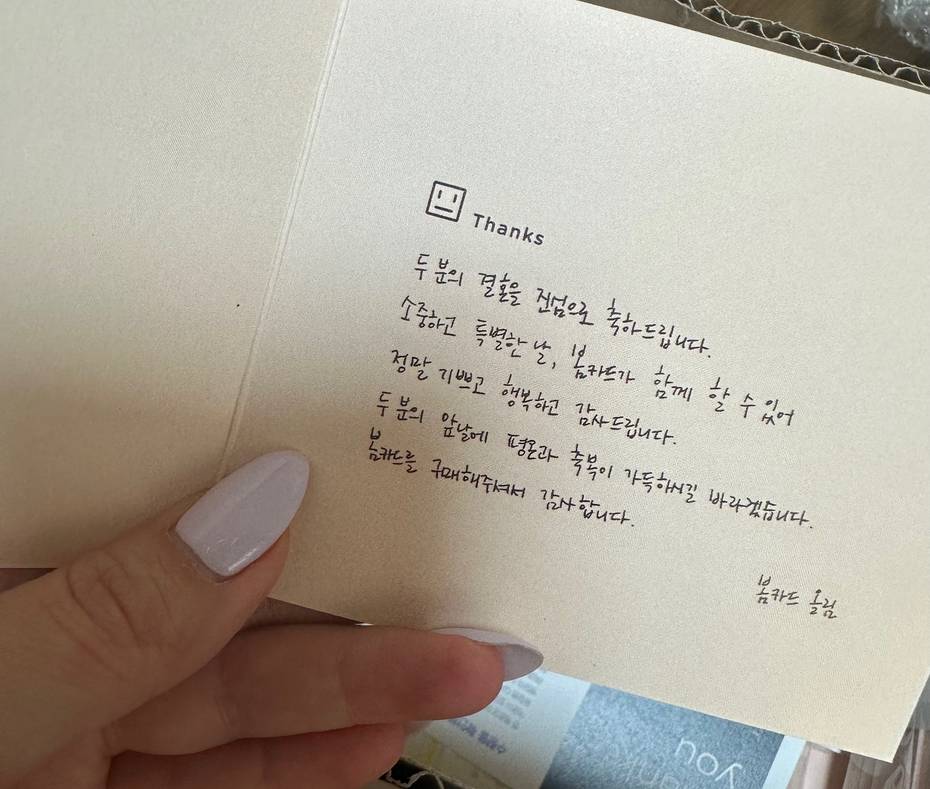 Thanks
두 분의 결혼을 진심으로 축하드립니다.
소중하고 특별한 날, 봄카드가 함께 할 수 있어
정말 기쁘고 행복하고 감사드립니다.
두 분의 앞날에 평온과 축복이 가득하시길 바라겠습니다.
봄카드를 구매해주셔서 감사합니다.
봄카드 올림
you